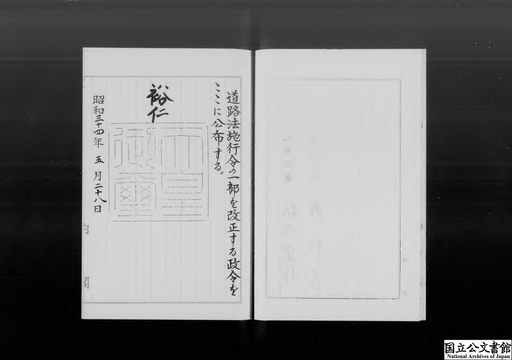 道路法施行令の一部を改正する政令を
ここに公布する。
裕仁
天皇
御璽
昭和三十四年 五 月二十八日
国立公文書館
National Archives of Japan